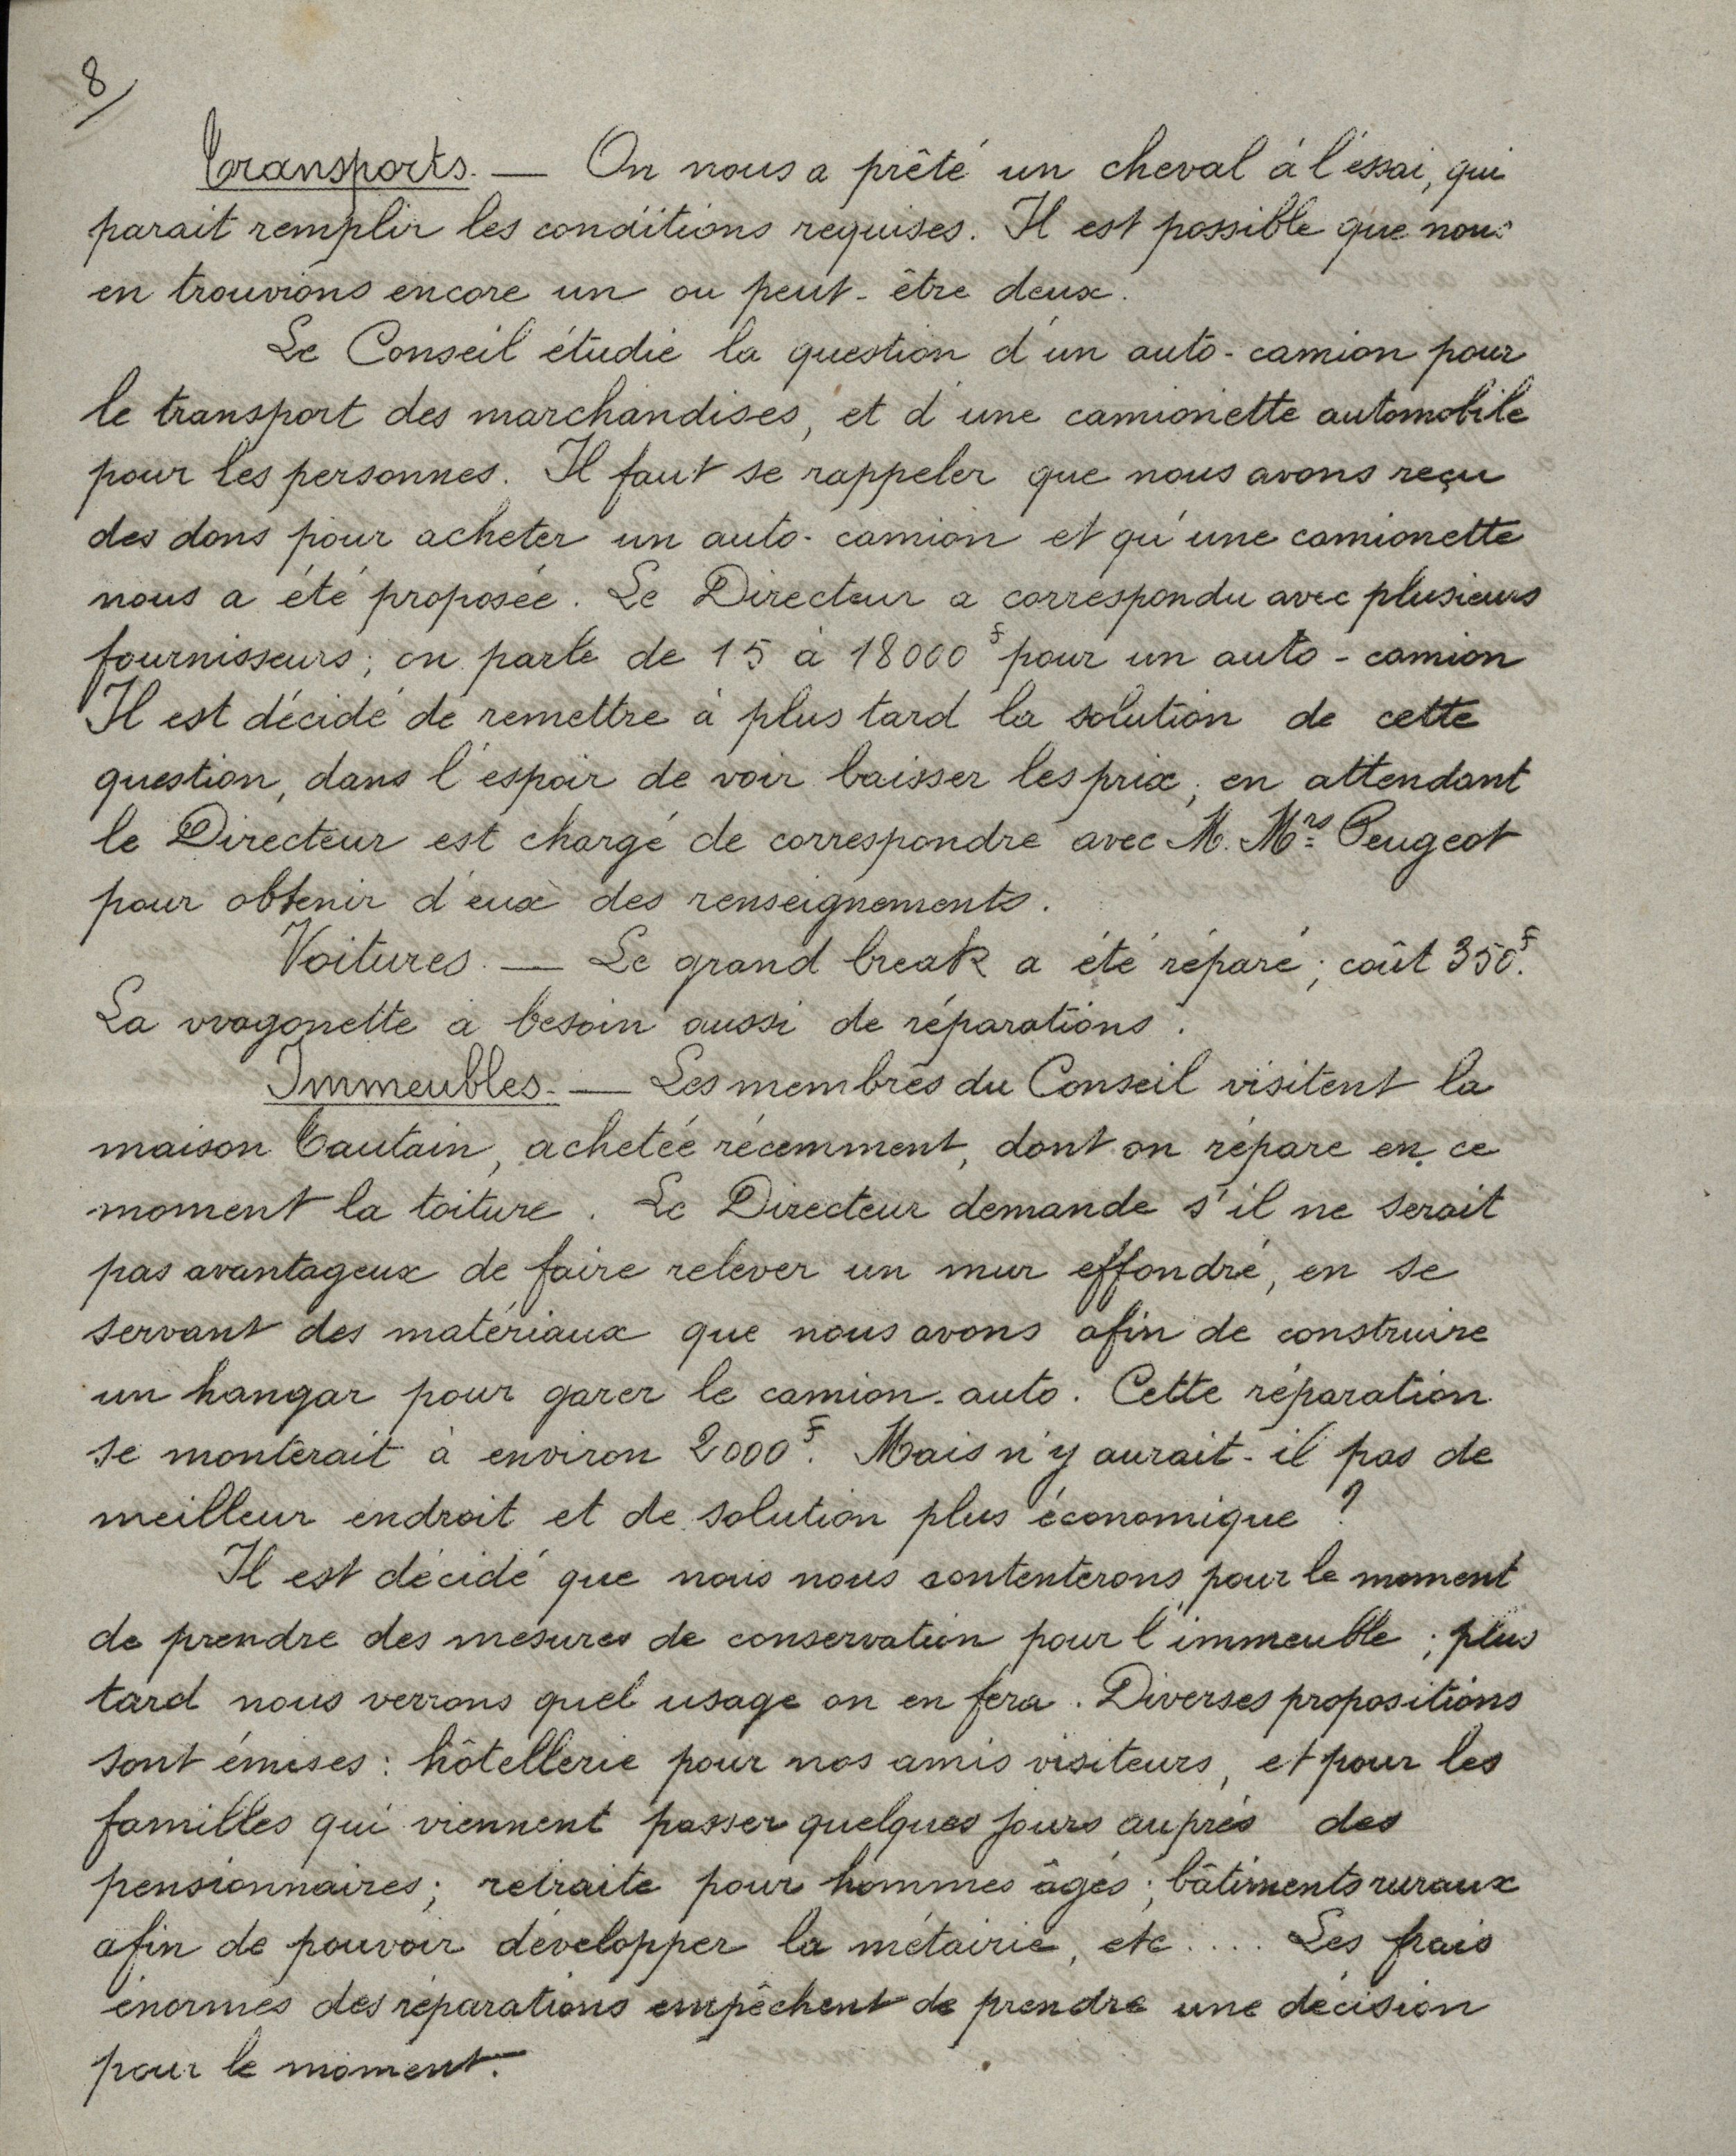 8/
Transports. — On nous a prêté un cheval à l'éssai, qui
parait remplir les conditions requises. Il est possible que nous
en trouvions encore un ou peut-être deux.
Le Conseil étudie la question d'un auto-camion pour
le transport des marchandises, et d'une camionette automobile
pour les personnes. Il faut se rappeler que nous avons reçu
des dons pour acheter un auto-camion et qu'une camionette
nous a été proposée. Le Directeur a correspondu avec plusieurs
fournisseurs; on parle de 15 à 18000 f pour un auto-camion
Il est décidé de remettre à plus tard la solution de cette
question, dans l'espoir de voir baisser les prix; en attendant
le Directeur est chargé de correspondre avec M. Mrs Peugeot
pour obtenir d'eux des renseignements.
Voitures. — Le grand break a été réparé; coût 350 f.
La wagonette a besoin aussi de réparations.
Immeubles. — Les membres du Conseil visitent la
maison Tautain, achetée récemment, dont on répare en ce
moment la toiture. Le Directeur demande s'il ne serait
pas avantageux de faire relever un mur effondré, en se
servant des matériaux que nous avons afin de construire
un hangar pour garer le camion-auto. Cette réparation
se monterait à environ 2000 f. Mais n'y aurait-il pas de
meilleur endroit et de solution plus économique ?
Il est décidé que nous nous contenterons pour le moment
de prendre des mesures de conservation pour l'immeuble; plus
tard nous verrons quel usage on en fera. Diverses propositions
sont émises: hôtellerie pour nos amis visiteurs, et pour les
familles qui viennent passer quelques jours auprès des
pensionnaires; retraite pour hommes âgés; bâtiments ruraux
afin de pouvoir développer la métairie, etc.... Les frais
énormes des réparations empêchent de prendre une décision
pour le moment.